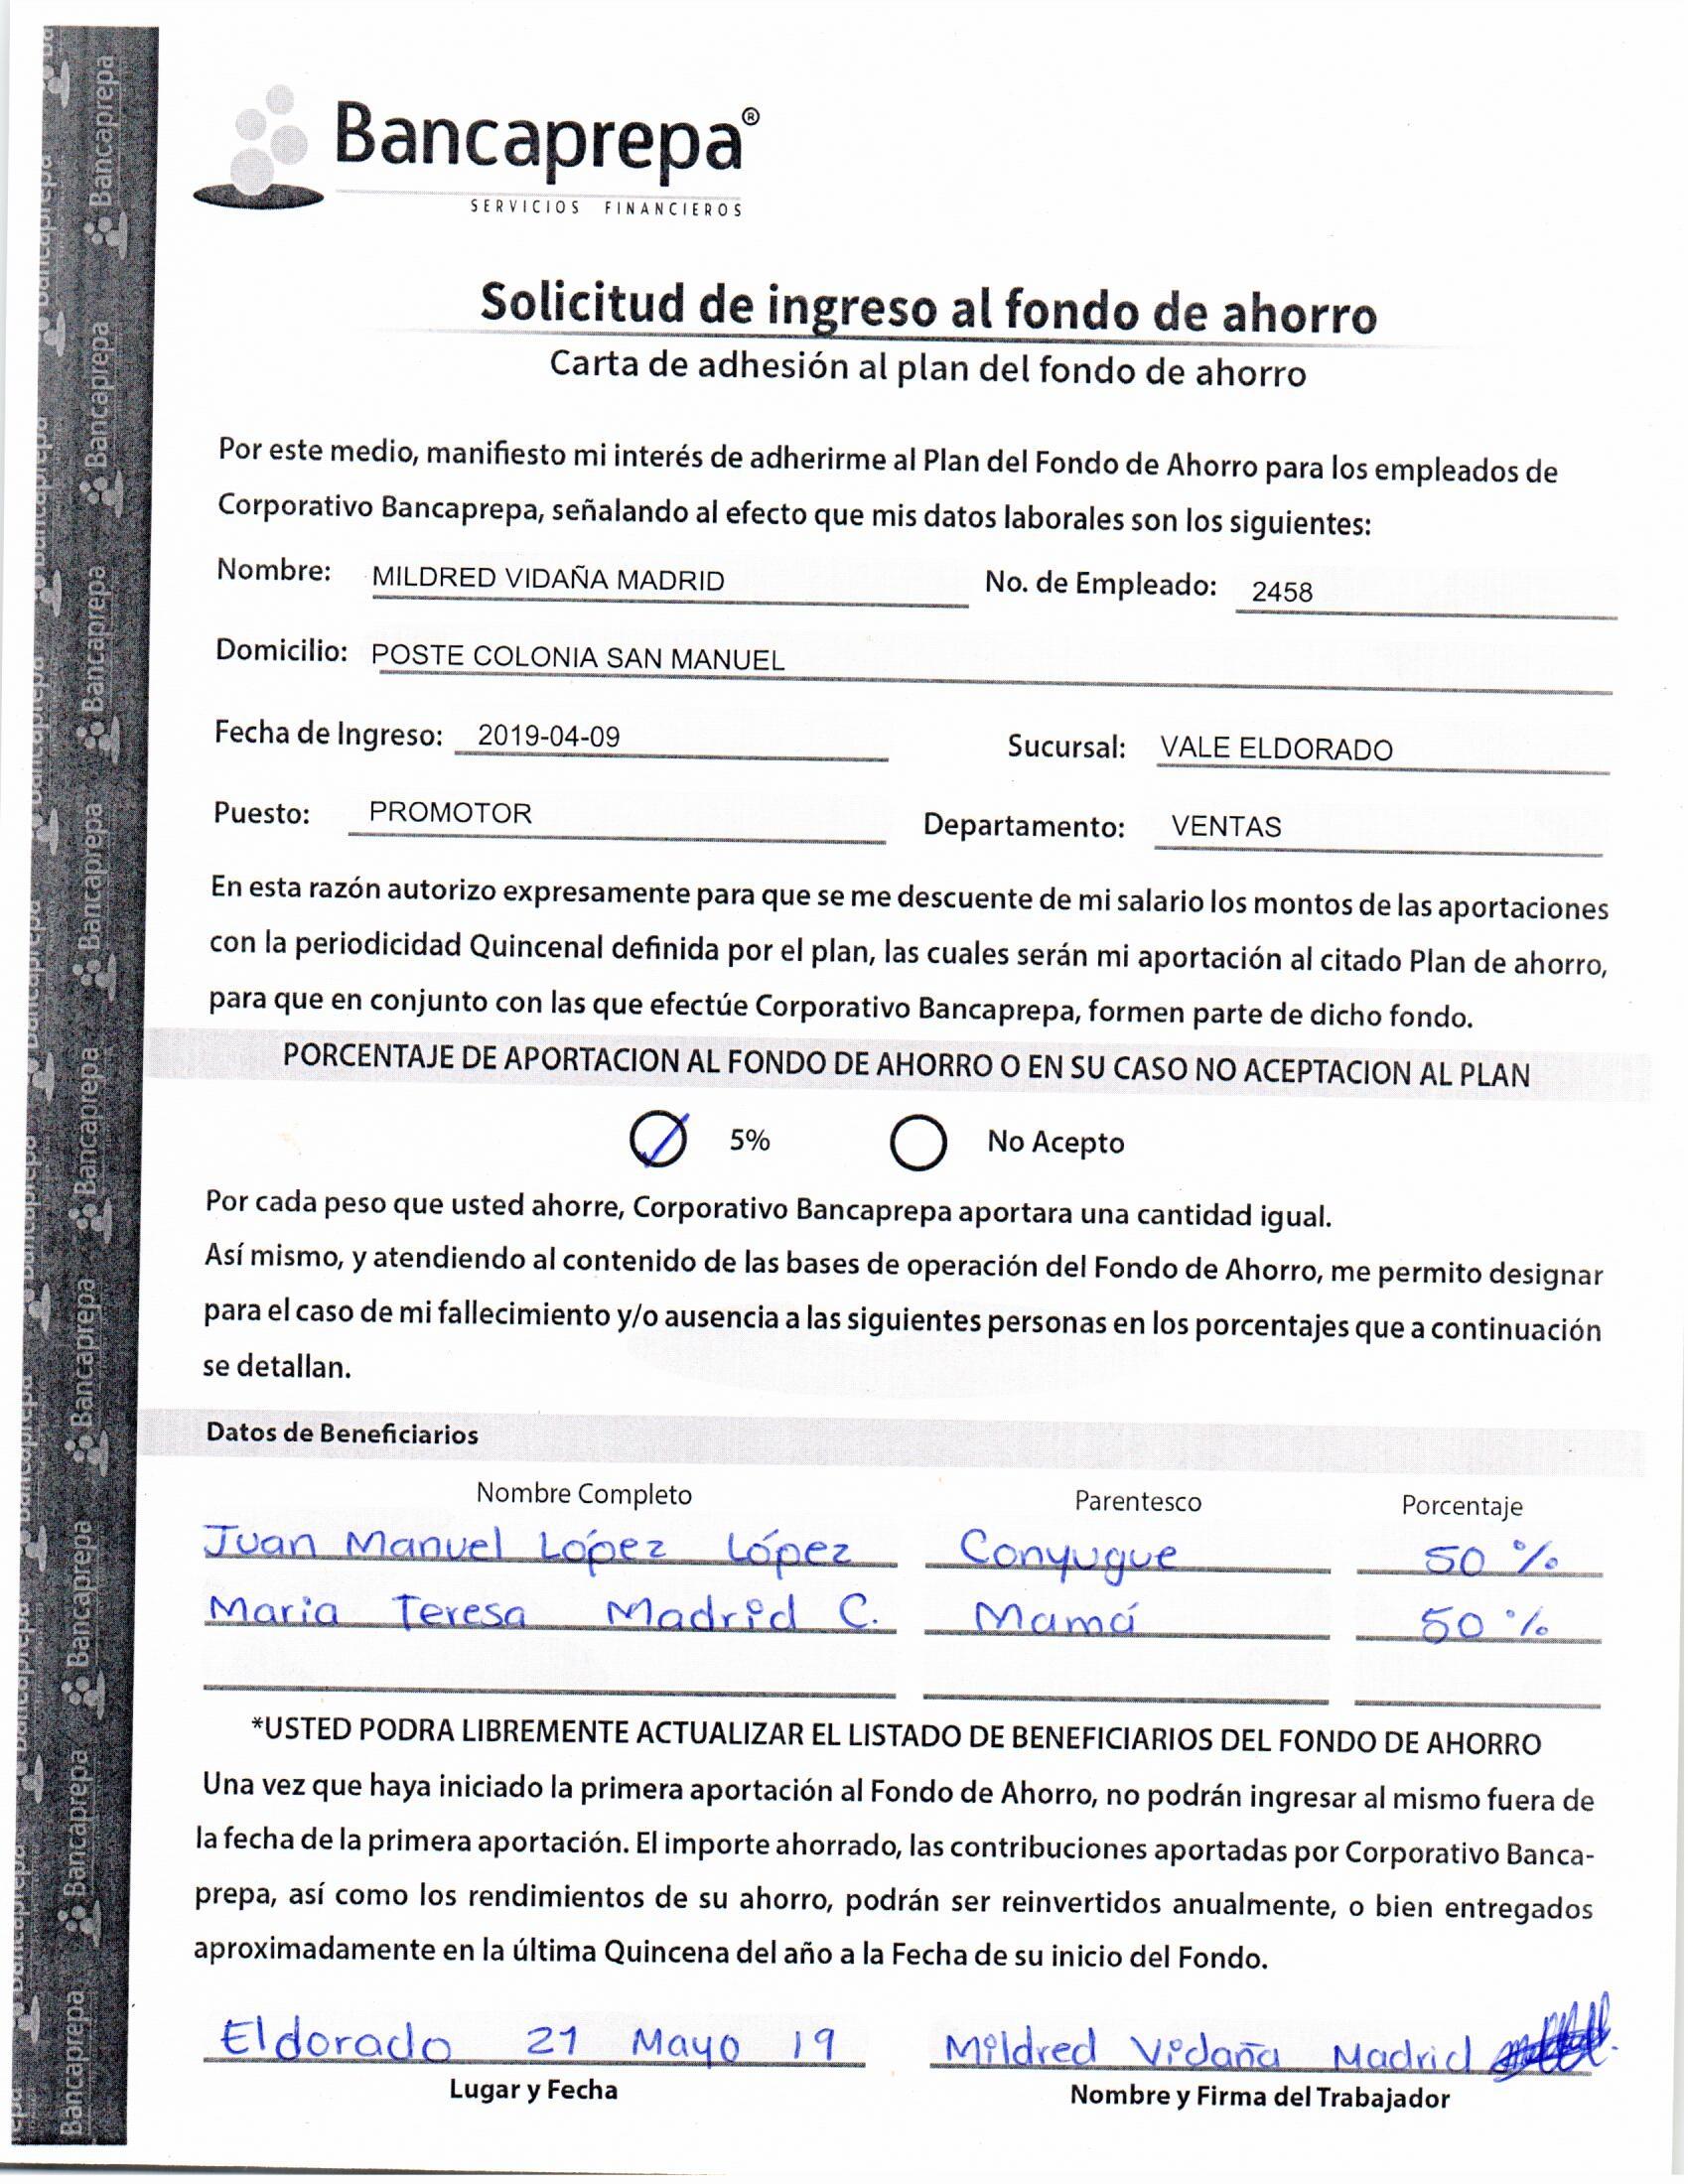 Bancaprepa®
SERVICIOS FINANCIEROS
Solicitud de ingreso al fondo de ahorro
Carta de adhesión al plan del fondo de ahorro
Por este medio, manifiesto mi interés de adherirme al Plan del Fondo de Ahorro para los empleados de
Corporativo Bancaprepa, señalando al efecto que mis datos laborales son los siguientes:
Nombre: MILDRED VIDAÑA MADRID No. de Empleado: 2458
Domicilio: POSTE COLONIA SAN MANUEL
Fecha de Ingreso: 2019-04-09 Sucursal: VALE ELDORADO
Puesto: PROMOTOR Departamento: VENTAS
En esta razón autorizo expresamente para que se me descuente de mi salario los montos de las aportaciones
con la periodicidad Quincenal definida por el plan, las cuales serán mi aportación al citado Plan de ahorro,
para que en conjunto con las que efectúe Corporativo Bancaprepa, formen parte de dicho fondo.
PORCENTAJE DE APORTACION AL FONDO DE AHORRO O EN SU CASO NO ACEPTACION AL PLAN
5% No Acepto
Por cada peso que usted ahorre, Corporativo Bancaprepa aportara una cantidad igual.
Así mismo, y atendiendo al contenido de las bases de operación del Fondo de Ahorro, me permito designar
para el caso de mi fallecimiento y/o ausencia a las siguientes personas en los porcentajes que a continuación
se detallan.
Datos de Beneficiarios
Nombre Completo Parentesco Porcentaje
Juan Manuel López López Conyugue 50 %
Maria Teresa Madrid C. Mamá 50 %
*USTED PODRA LIBREMENTE ACTUALIZAR EL LISTADO DE BENEFICIARIOS DEL FONDO DE AHORRO
Una vez que haya iniciado la primera aportación al Fondo de Ahorro, no podrán ingresar al mismo fuera de
la fecha de la primera aportación. El importe ahorrado, las contribuciones aportadas por Corporativo Banca-
prepa, así como los rendimientos de su ahorro, podrán ser reinvertidos anualmente, o bien entregados
aproximadamente en la última Quincena del año a la Fecha de su inicio del Fondo.
Eldorado 21 Mayo 19 Mildred Vidaña Madrid
Lugar y Fecha Nombre y Firma del Trabajador